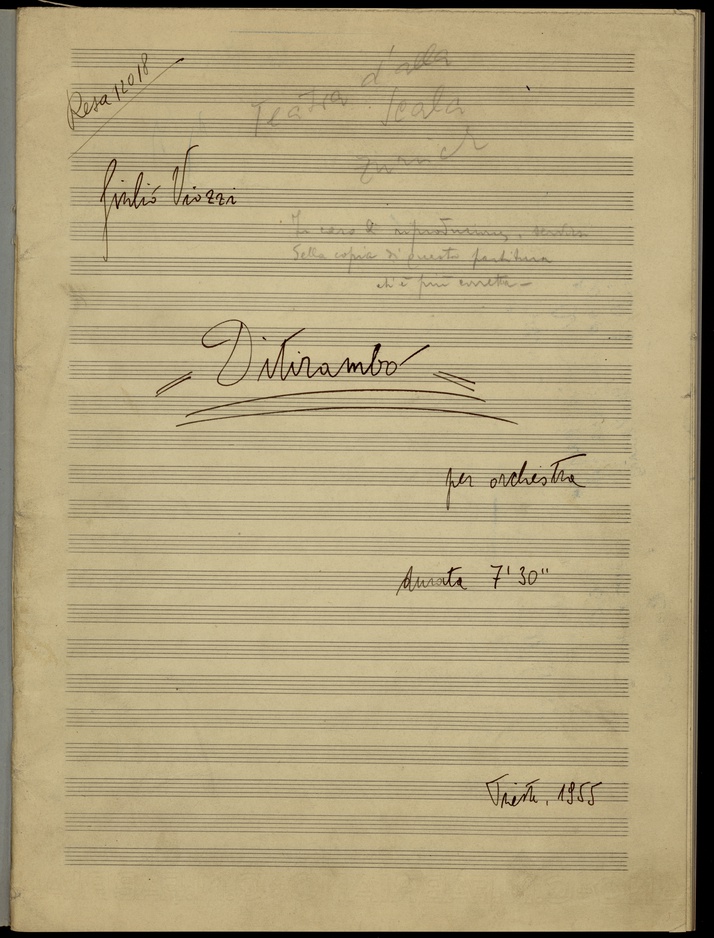 Resa 12018
Teatra d'alla
Scala
Zurich
Giulio Viozzi
In caso di riproduzione, servirsi
della copia di questa partitura
ch'è più corretta —
Ditirambo
per orchestra
durata 7' 30"
Trieste, 1955